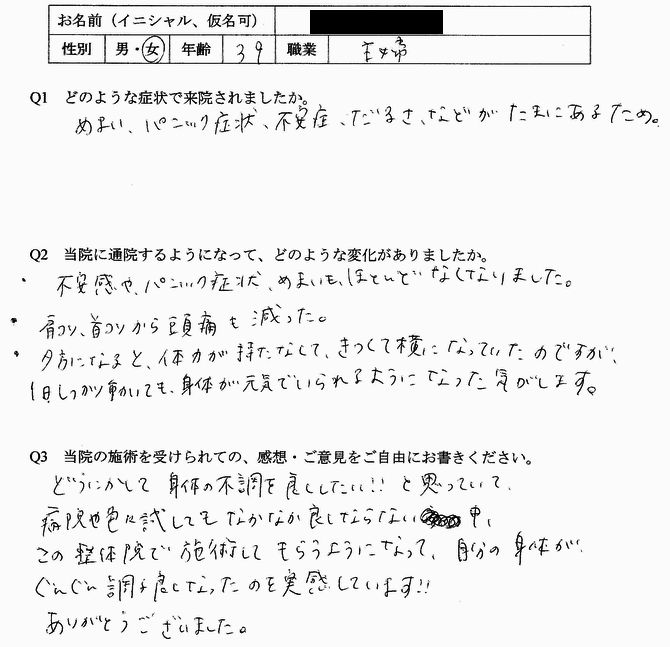 お名前（イニシャル、仮名可）
性別 男・女 年齢 39 職業 主婦
Q1 どのような症状で来院されましたか。
めまい、パニック症状、不安症、だるさ、などがたまにあるため。
Q2 当院に通院するようになって、どのような変化がありましたか。
・不安感や、パニック症状、めまいも、ほとんどなくなりました。
・肩コリ、首コリから頭痛も減った。
・夕方になると、体力が持たなくて、きつくて横になっていたのですが、
1日しっかり動いても、身体が元気でいられるようになった気がします。
Q3 当院の施術を受けられての、感想・ご意見をご自由にお書きください。
どうにかして身体の不調を良くしたい!!と思っていて、
病院や色々試してもなかなか良くならない中、
この整体院で施術してもらうようになって、自分の身体が、
ぐんぐん調子良くなったのを実感しています!!
ありがとうございました。